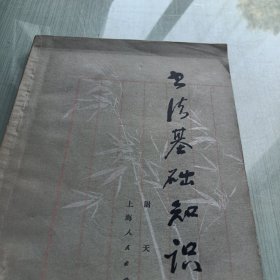 书法基础知识
尉天
上海人民